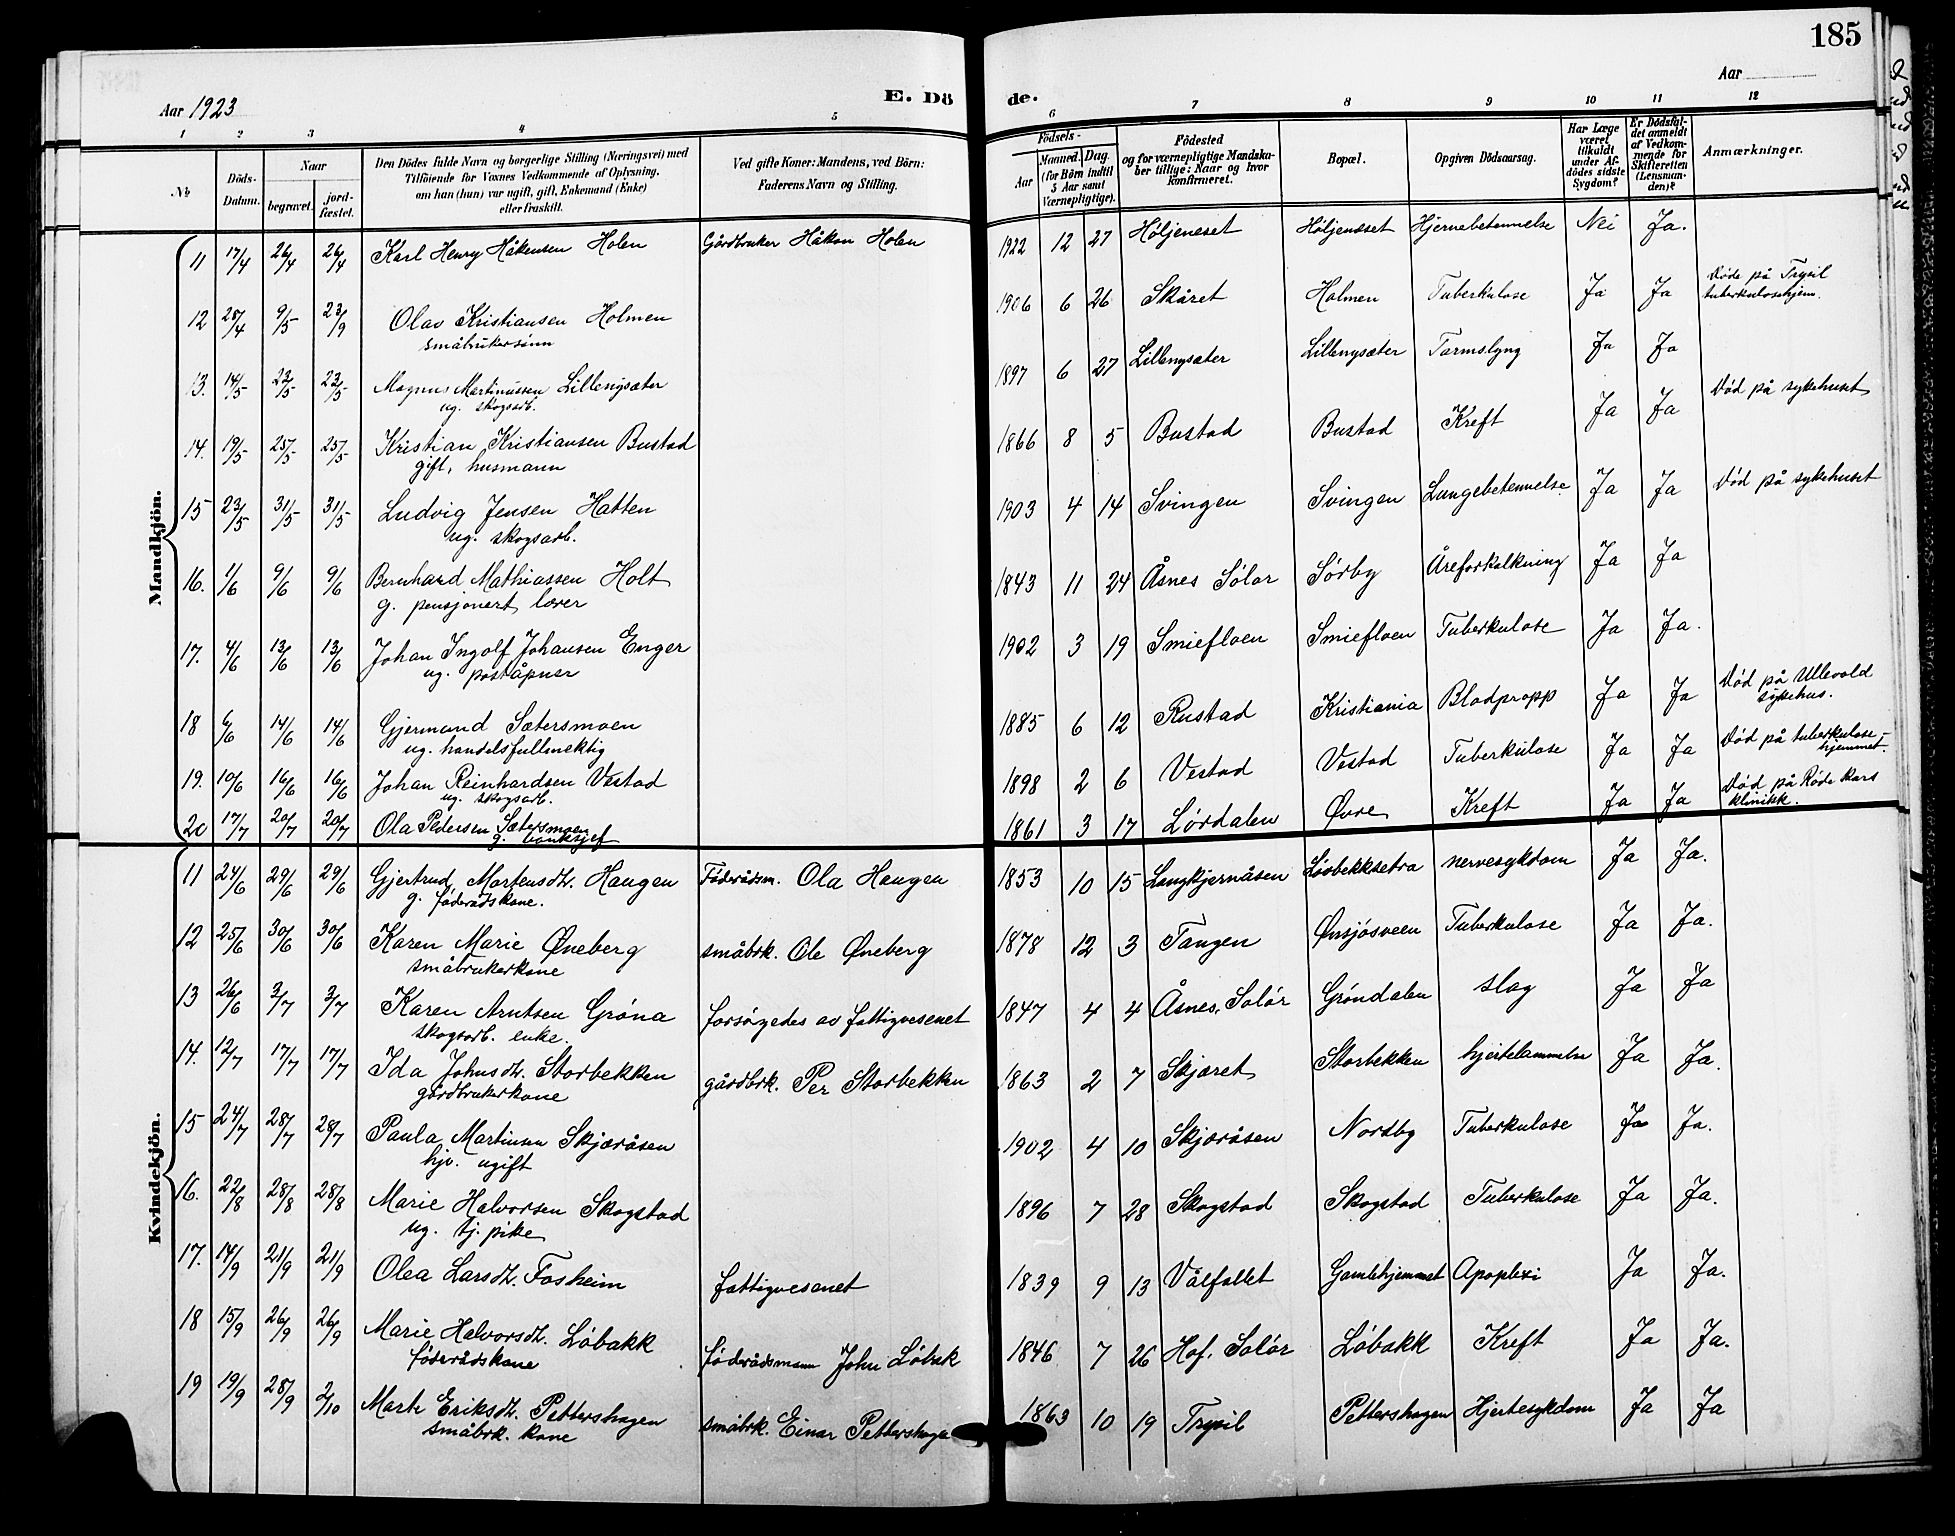 185
Aar 1923
E. Dö
de.
Aar
1 2 3 4 5 6 7 8 9 10 11 12
№
Döds-Datum.
Naar
begravet.
jord-fæstet.
Den Dödes fulde Navn og borgerlige Stilling (Næringsvei) med
Tilföiende for Voxnes Vedkommende af Oplysning,
om han (hun) var ugift, gift, Enkemand (Enke)
eller fraskilt.
Ved gifte Koner: Mandens, ved Börn:
Faderens Navn og Stilling.
Födsels-
Aar
Maaned. Dag.
(for Börn indtil
5 Aar samt
Værnepligtige).
Födested
og for værnepligtige Mandska-
ber tillige: Naar og hvor
konfirmeret.
Bopæl.
Opgiven Dödsaarsag.
Har Læge
været
tilkaldt
under Af-
dödes sidste
Sygdom?
Er Dödsfal-
det anmeldt
af Vedkom-
mende for
Skifteretten
(Lensman-
den)?
Anmærkninger.
Mandkjön.
11 17/4 26/4 26/4 Karl Henry Håkensen Holen Gårdbruker Håkon Holen 1922 12 27 Høljeneset Høljeneset Hjernebetennelse Nei Ja.
12 28/4 9/5 23/9 Olav Kristiansen Holmen 1906 6 26 Skåret Holmen Tuberkulose Ja Ja Døde på Trysil
småbrukersønn tuberkulosehjem.
13. 14/5 23/5 23/5 Magnus Martinussen Lillengsæter 1897 6 27 Lillengsæter Lillengsæter Tarmslyng Ja Ja
ug. skogsarb.
14. 19/5 25/5 25/5 Kristian Kristiansen Bustad 1866 8 5 Bustad Bustad Kreft Ja Ja Død på sykehuset
gift, husmann
15 23/5 31/5 31/5 Ludvig Jensen Hatten 1903 4 14 Svingen Svingen Lungebetennelse Ja Ja Død på sykehuset
ug. skogsarb.
16. 1/6 9/6 9/6 Bernhard Mathiassen Holt 1843 11 24 Åsnes Solør Sørby Åreforkalkning Ja Ja
g. pensjonert lærer
17. 4/6 13/6 13/6 Johan Ingolf Johansen Enger 1902 3 19 Smiefloen Smiefloen Tuberkulose Ja Ja.
ug. poståpner
18 6/6 14/6 14/6 Gjermund Sætersmoen 1885 6 12 Rustad Kristiania Blodpropp Ja Ja Død på Ullevold
ug. handelsfullmektig sykehus.
19. 10/6 16/6 16/6 Johan Reinhardsen Vestad 1898 2 6 Vestad Vestad Tuberkulose Ja Ja Død på tuberkulose-
ug. skogsarb. hjemmet.
20 17/7 20/7 20/7 Ola Pedersen Sætersmoen 1861 3 17 Lørdalen Øvre Kreft Ja Ja Død på Røde Kors
g. banksjef klinikk.
Kvindekjön.
11 24/6 29/6 29/6 Gjertrud Martensdt. Haugen Føderådsm. Ola Haugen 1853 10 15 Langkjernåsen Løvbekksetra nervesykdom Ja Ja.
g. føderådskone.
12 25/6 30/6 30/6 Karen Marie Øneberg småbrk. Ole Øneberg 1878 12 3 Tangen Ønsjøsveen Tuberkulose Ja Ja.
småbrukerkone
13 26/6 3/7 3/7 Karen Arntsen Grøna forsørgedes av fattigvesenet 1847 4 4 Åsnes, Solør Grøndalen slag Ja Ja
skogsarb. enke.
14. 12/7 17/7 17/7 Ida Johnsdt. Storbekken gårdbrk. Per Storbekken 1863 2 7 Skjæret Storbekken hjertelammelse Ja Ja.
gårdbrukerkone
15 24/7 28/7 28/7 Paula Martinsen Skjæråsen 1902 4 10 Skjæråsen Nordby Tuberkulose Ja Ja.
hjv. ugift
16. 22/8 28/8 28/8 Marie Halvorsen Skogstad 1896 7 28 Skogstad Skogstad Tuberkulose Ja Ja.
ug. tj. pike
17. 14/9 21/9 21/9 Olea Larsdt. Fosheim fattigvesenet 1839 9 13 Vålfallet Gamlehjemmet Apoplexi Ja Ja.
18 15/9 26/9 26/9 Marie Halvorsdt. Løbakk føderådsmann John Løbak 1846 7 26 Hof, Solør Løbakk Kreft Ja Ja.
føderådskone
19 19/9 28/9 2/10 Marte Eriksdt. Pettershagen småbrk. Einar Pettershage 1863 10 19 Trysil Pettershagen Hjertesykdom Ja Ja
småbrk. kone